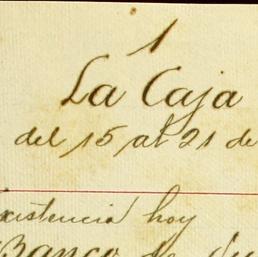 1
La Caja
del 15 al 21 de
existencia hoy
Banco de